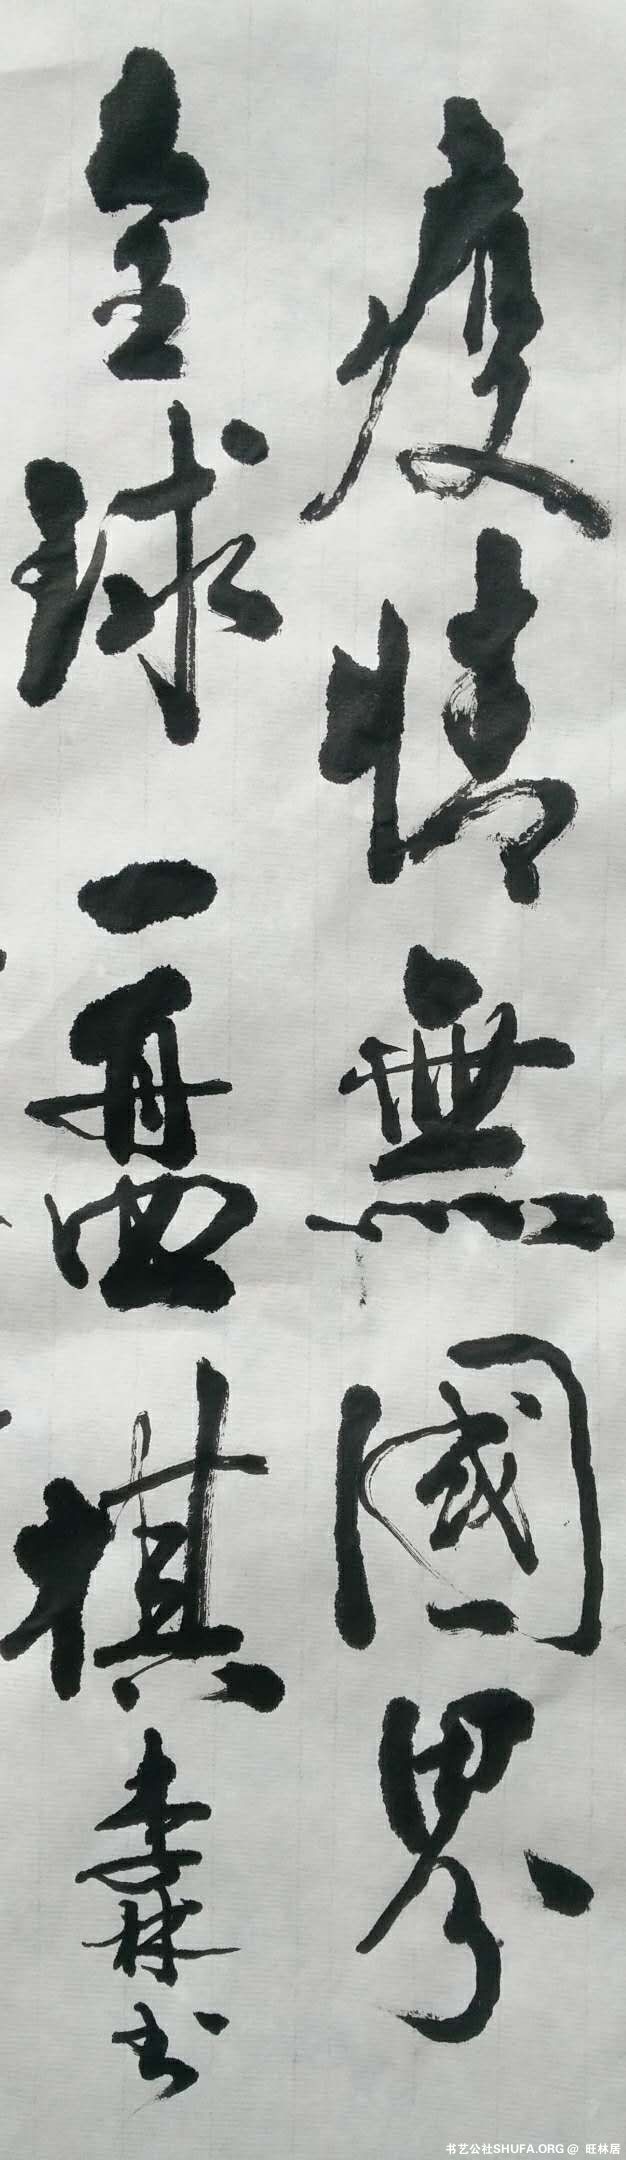 疫情無國界
全球一盤棋
李林书
书艺公社SHUFA.ORG @ 旺林居